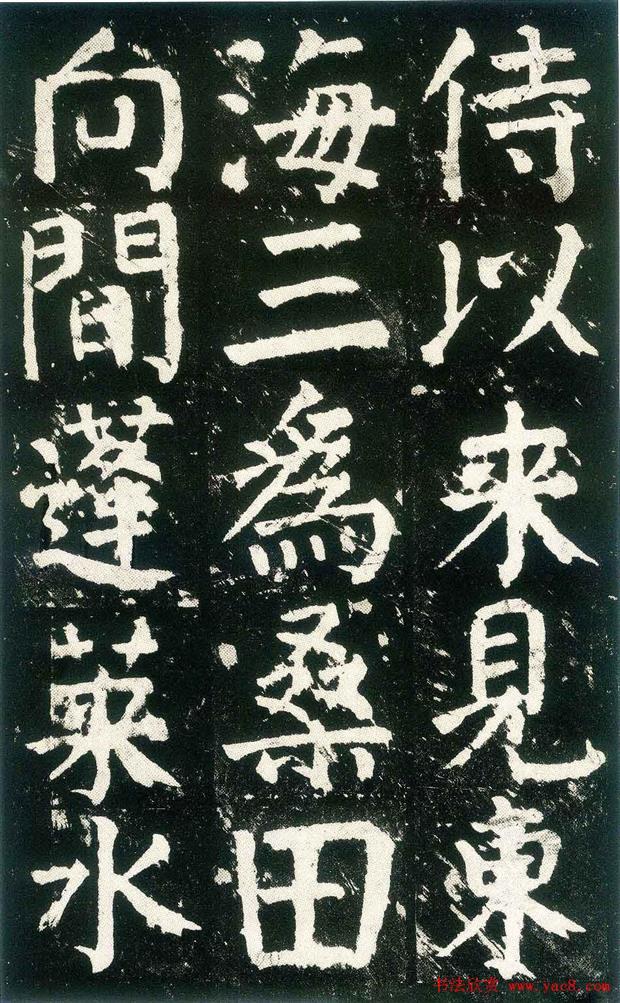 侍以来見東
海三為桑田
向間蓬萊水
书法欣赏 www.yac8.com